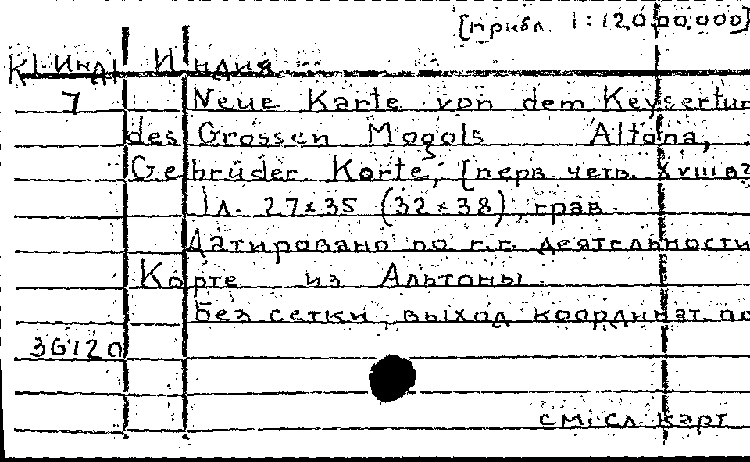 [прибл. 1:12.000.000]
К1-Инд1 Индия
7 Neue Karte von dem Keysertum
des Grossen Mogols Altona,
Gebrüder Korte, [перв. четв. XVIII в?
1 л. 27×35 (32×38), грав.
Датировано по г.г. деятельности
Корте из Альтоны.
Без сетки, выход координат по
36120
см. сл. карт